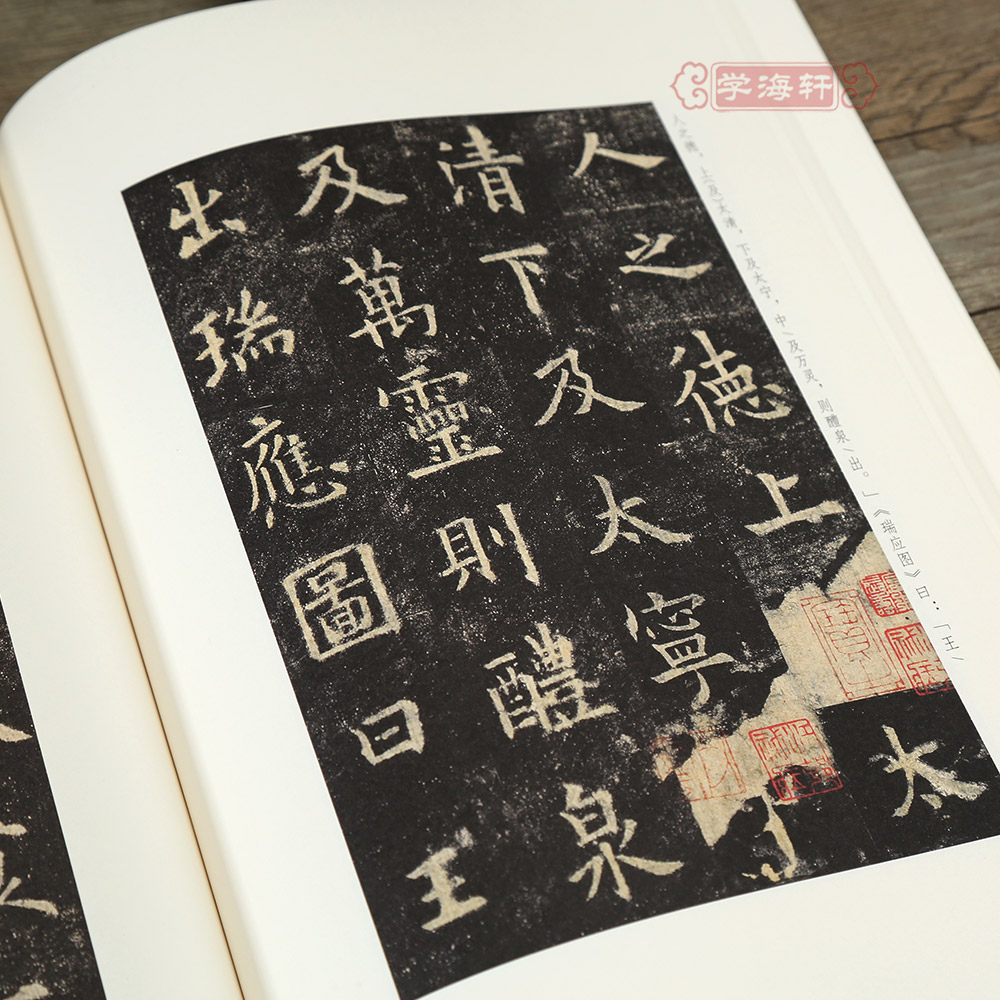 学海轩
人之德，上(及)太清，下及太宁，中/及万灵，则醴泉/出。」《瑞应图》曰：「王/
人之德上太
清下及太寧
及萬靈則醴泉
出瑞應圖曰王